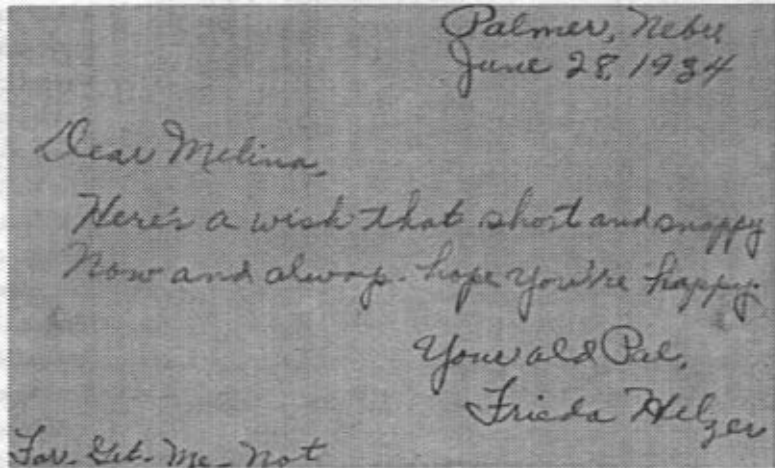 Palmer, Nebr.
June 28, 1934
Dear Melina,
Here's a wish that short and snappy
Now and always hope you're happy.
Your old Pal,
Frieda Helzer
For-Get-Me-Not